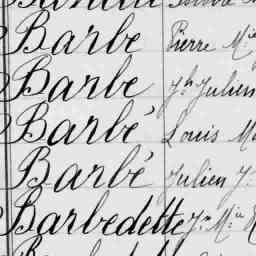 Barbé Pierre M.ie
Barbé J.h Julien
Barbé Louis
Barbé Julien J.
Barbedette J.n M.ie